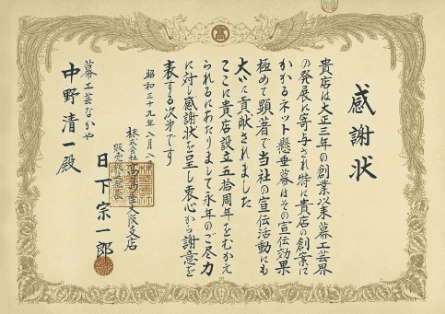 感謝状
貴店は大正三年の創業以来幕工芸界
の発展に寄与され特に貴店の創案に
かかるネット懸垂幕はその宣伝効果
極めて顕著で当社の宣伝活動にも
大いに貢献されました
ここに貴店設立五拾周年をむかえ
られるにあたりまして永年のご尽力
に対し感謝状を呈し衷心から謝意を
表する次第です
昭和三十九年八月八
株式会社髙島屋大阪支店
日下宗一郎
幕工芸なかや
中野清一殿